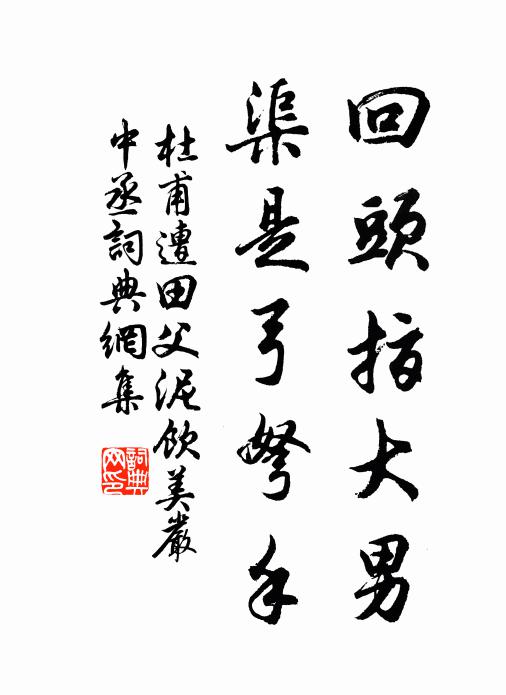 回頭指大男
渠是弓弩手
杜甫遭田父泥飲美嚴
中丞詞典網集
詞典
网印